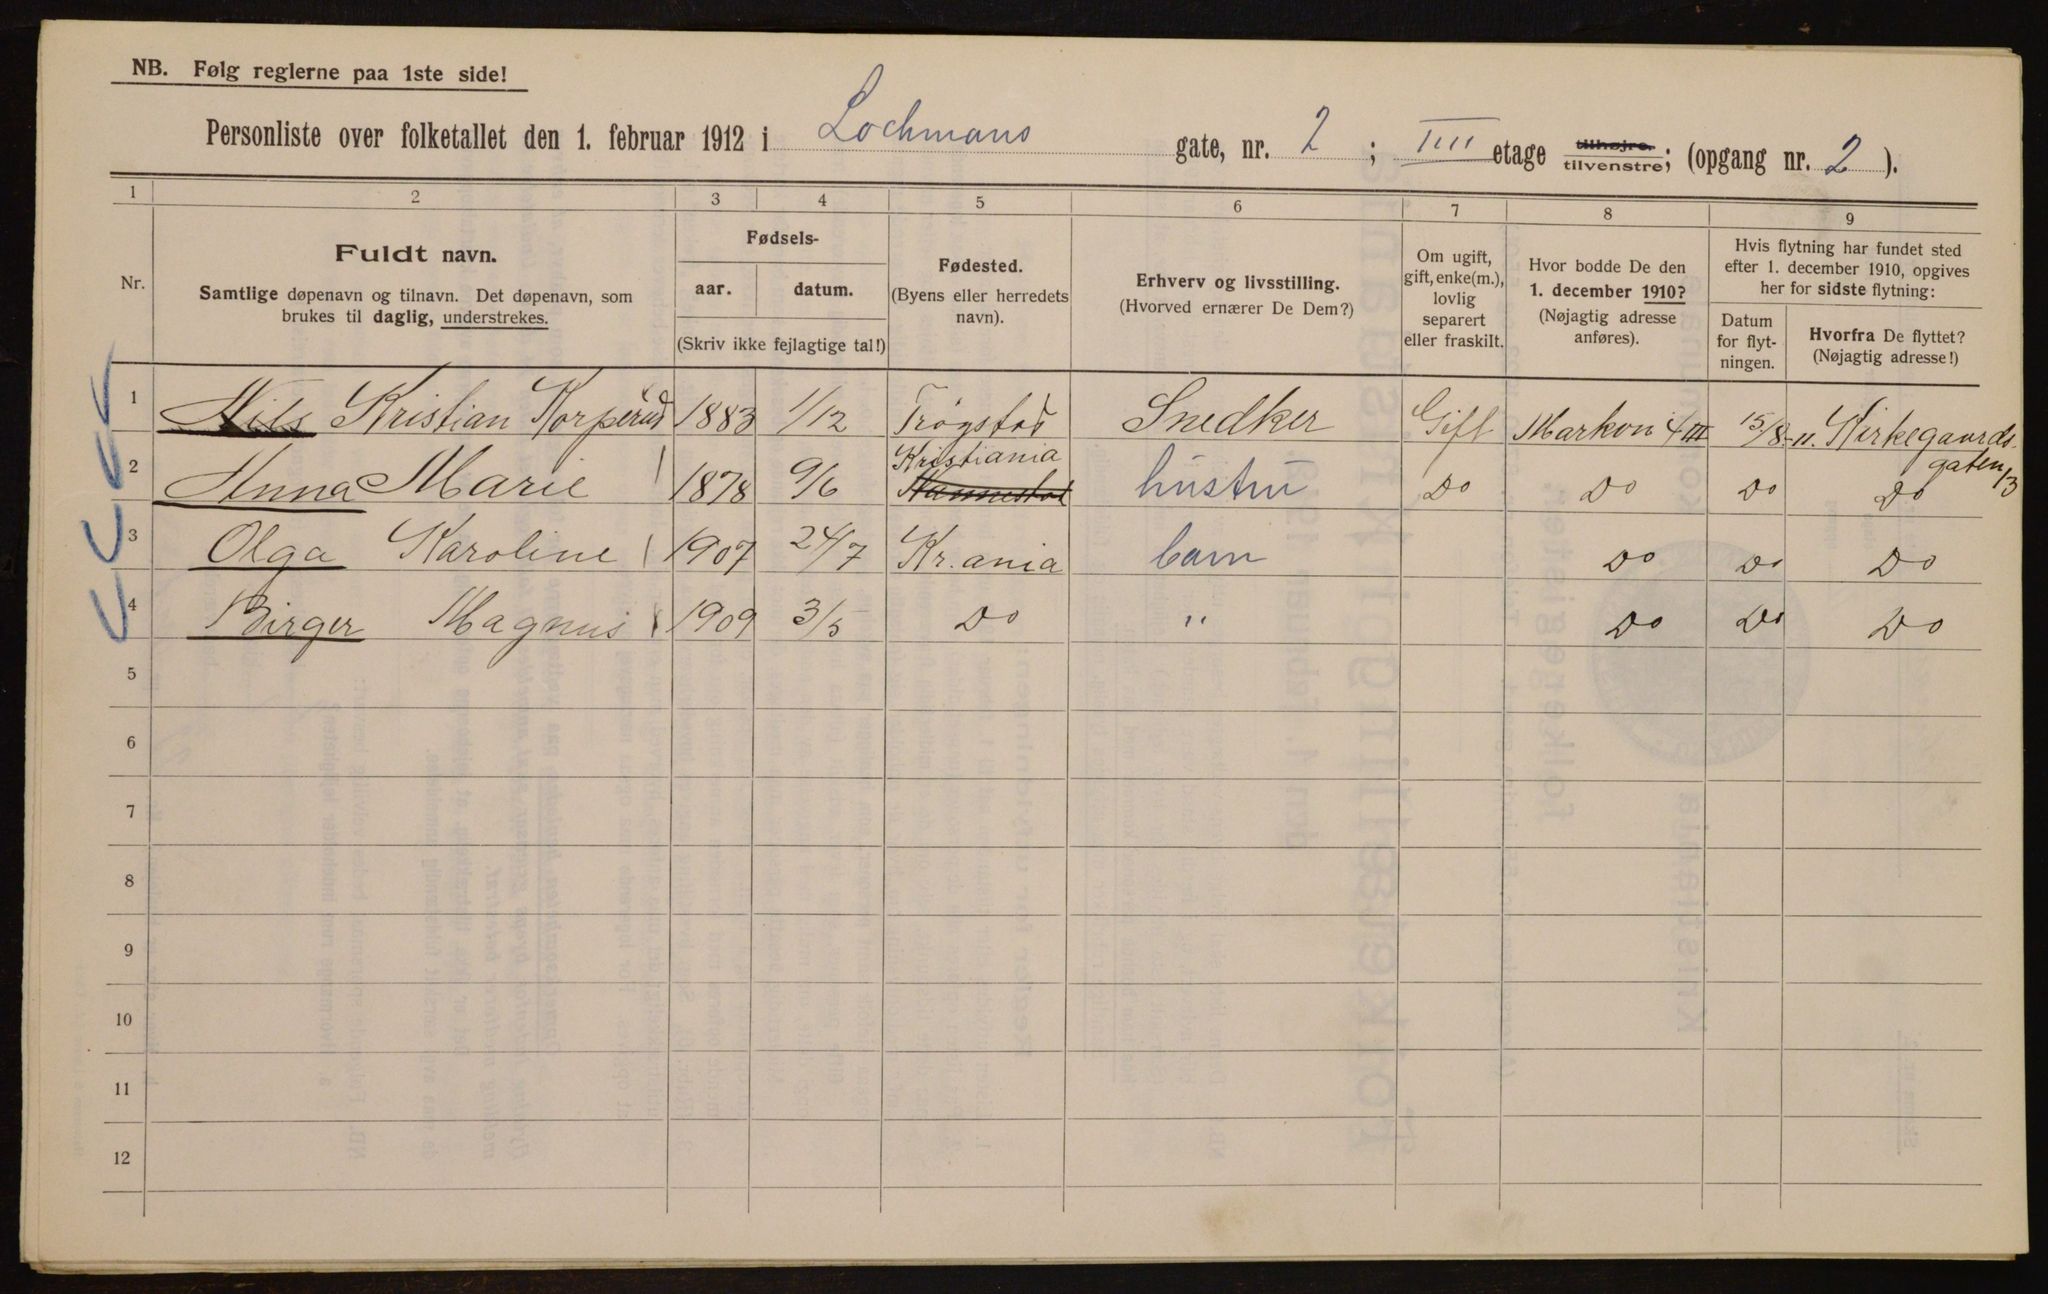 NB. Følg reglerne paa 1ste side!
Personliste over folketallet den 1. februar 1912 i Lochmans gate, nr. 2 ; IIII etage tilhøjre. tilvenstre; (opgang nr. 2 ).
1 2 3 4 5 6 7 8 9
Nr.
Fuldt navn.
Samtlige døpenavn og tilnavn. Det døpenavn, som
brukes til daglig, understrekes.
Fødsels-
aar. datum.
(Skriv ikke fejlagtige tal!)
Fødested.
(Byens eller herredets
navn).
Erhverv og livsstilling.
(Hvorved ernærer De Dem?)
Om ugift,
gift, enke(m.),
lovlig
separert
eller fraskilt.
Hvor bodde De den
1. december 1910?
(Nøjagtig adresse
anføres).
Hvis flytning har fundet sted
efter 1. december 1910, opgives
her for sidste flytning:
Datum
for flyt-
ningen.
Hvorfra De flyttet?
(Nøjagtig adresse!)
1 Nils Kristian Korperud 1883 1/12 Trøgstad Snedker Gift Markvei 4 III 15/8-11. Kirkegaards-
gaten 13
2 Anna Marie 1878 9/6 Kristiania Nannestad hustru Do Do Do Do
3 Olga Karoline 1907 24/7 Kr.ania barn Do Do Do
4 Birger Magnus 1909 3/5 Do " Do Do Do
5
6
7
8
9
10
11
12